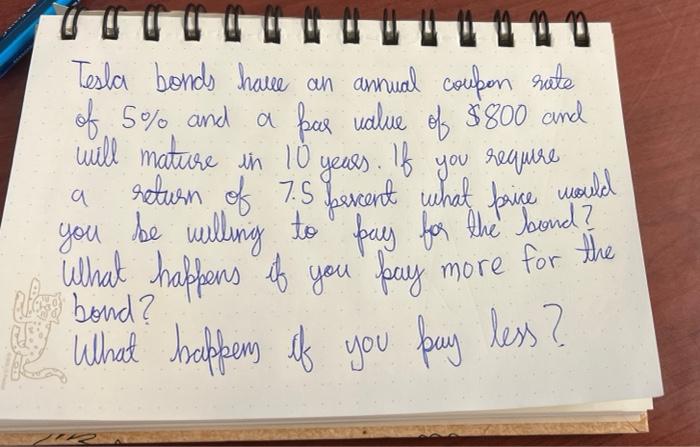 Tesla bonds have an annual coupon rate
of 5% and a par value of $800 and
will mature in 10 years. If you require
a return of 7.5 percent what price would
you be willing to pay for the bond?
What happens if you pay more for the
bond?
What happens if you pay less?